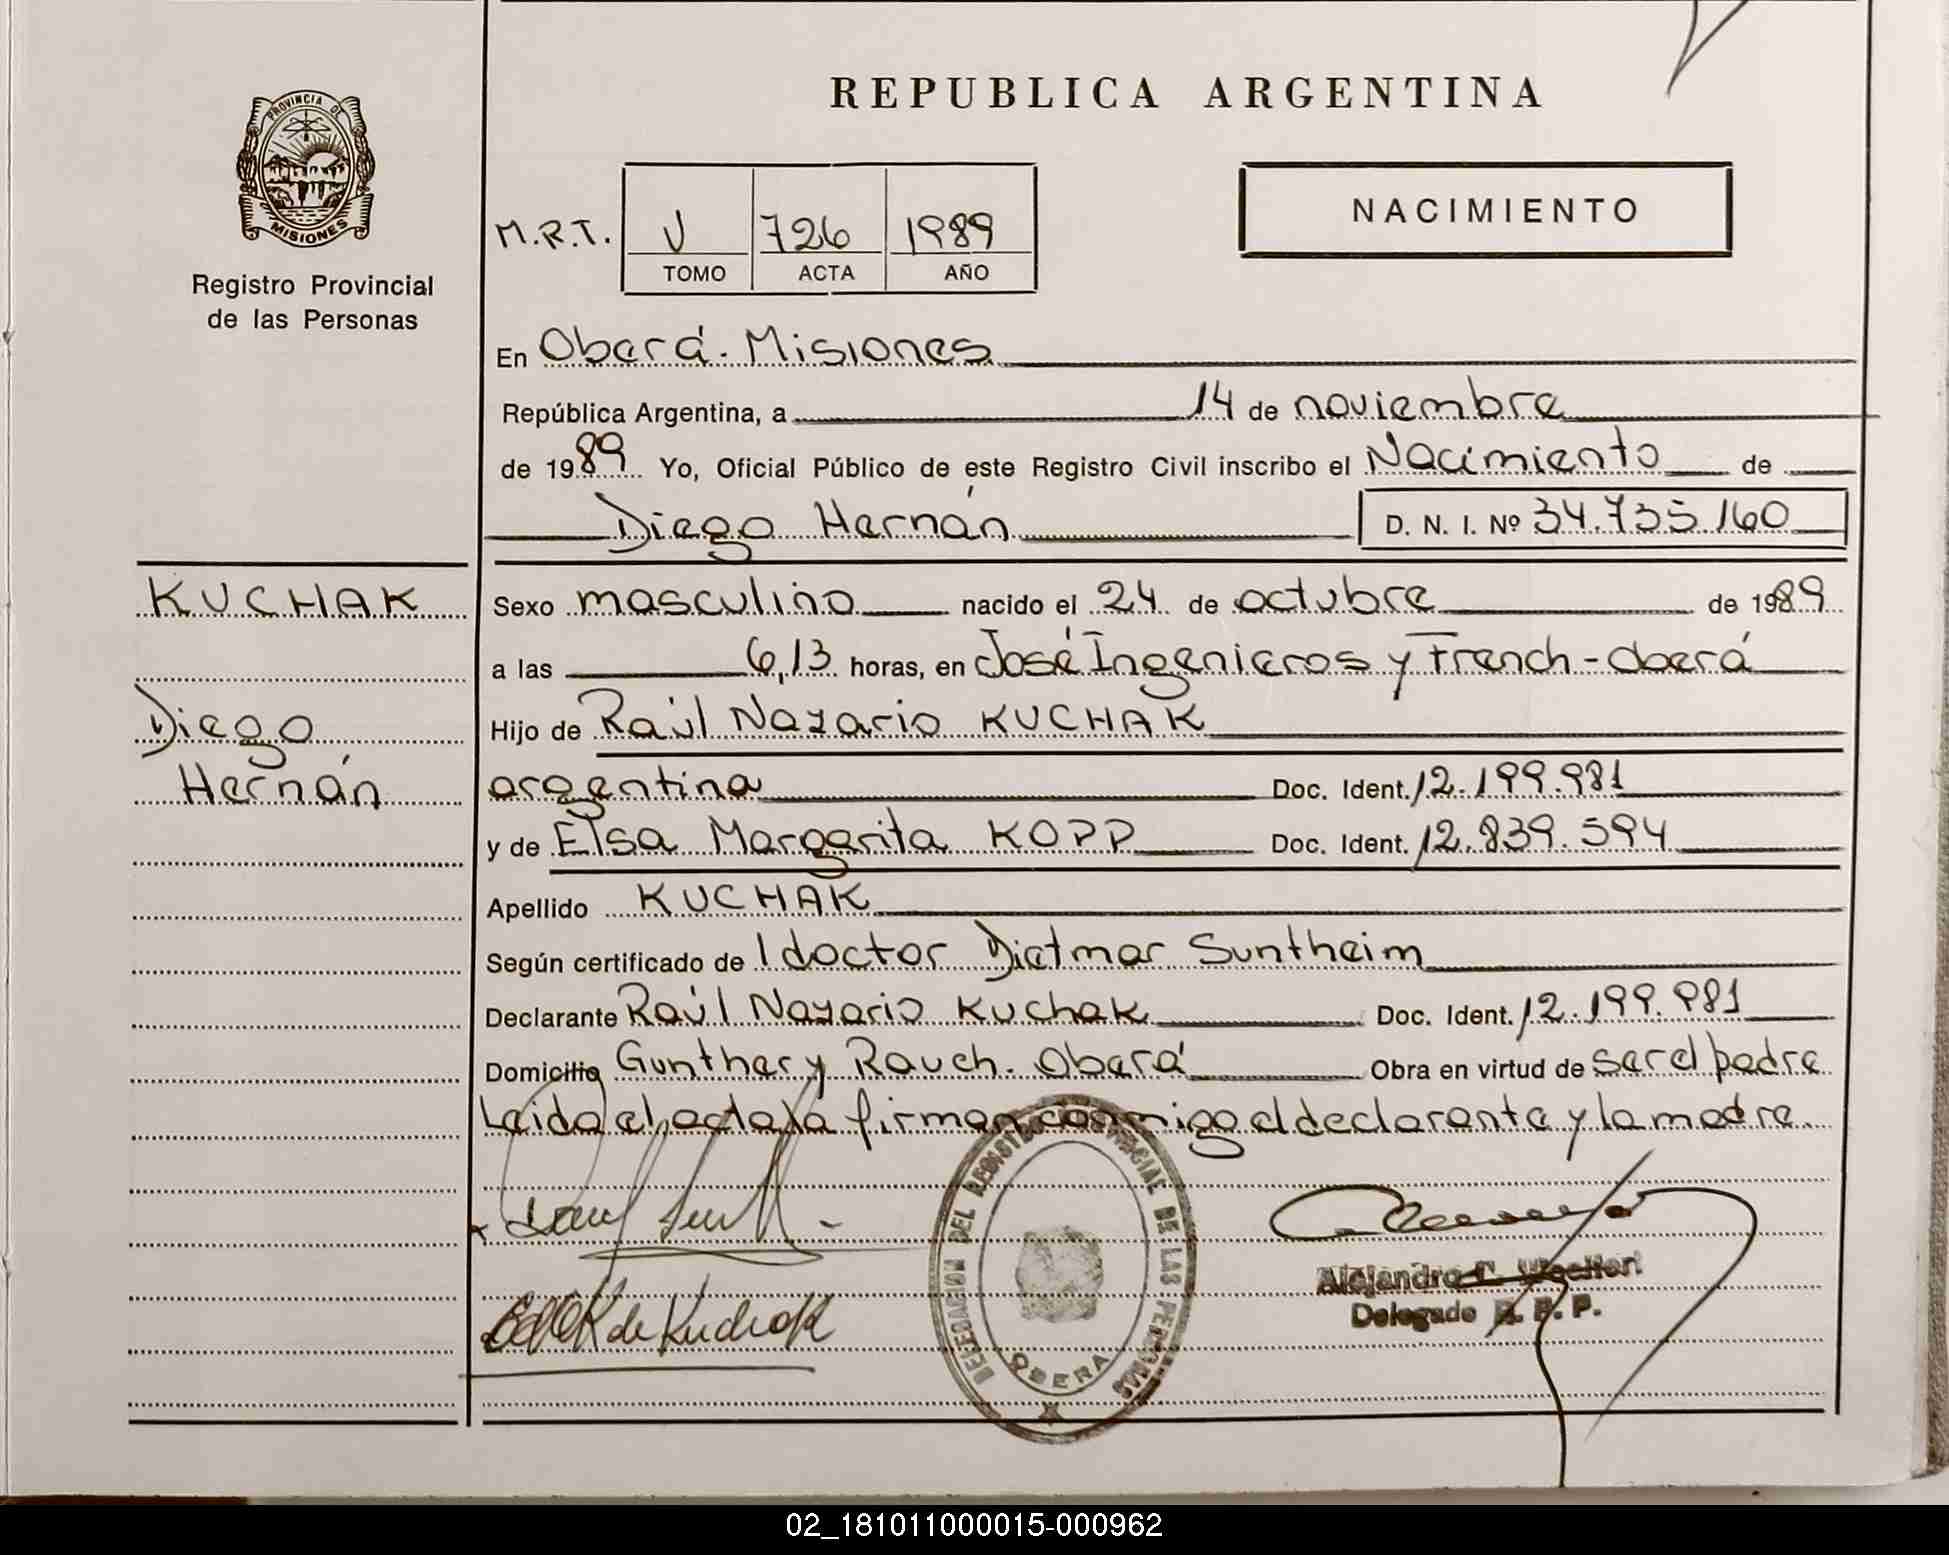 REPUBLICA ARGENTINA
PROVINCIA DE
MISIONES
Registro Provincial
de las Personas
M.R.T. V 726 1989
TOMO ACTA AÑO
NACIMIENTO
En Oberá. Misiones
República Argentina, a 14 de noviembre
de 1989 Yo, Oficial Público de este Registro Civil inscribo el Nacimiento de
Diego Hernán D. N. I. Nº 34.735.160
KUCHAK
Diego
Hernán
Sexo masculino nacido el 24 de octubre de 1989
a las 6,13 horas, en José Ingenieros y French - Oberá
Hijo de Raúl Nazario KUCHAK
argentina Doc. Ident. 12.199.981
y de Elsa Margarita KOPP Doc. Ident. 12.839.594
Apellido KUCHAK
Según certificado de l doctor Dietmar Suntheim
Declarante Raúl Nazario Kuchak Doc. Ident. 12.199.981
Domicilio Gunther y Rauch. Oberá Obra en virtud de ser el padre
Leida el acta la firman conmigo el declarante y la madre.
de Kuchak
DELEGACION DEL REGISTRO PROVINCIAL DE LAS PERSONAS
OBERA
Alejandro
Delegado R. P. P.
02_181011000015-000962